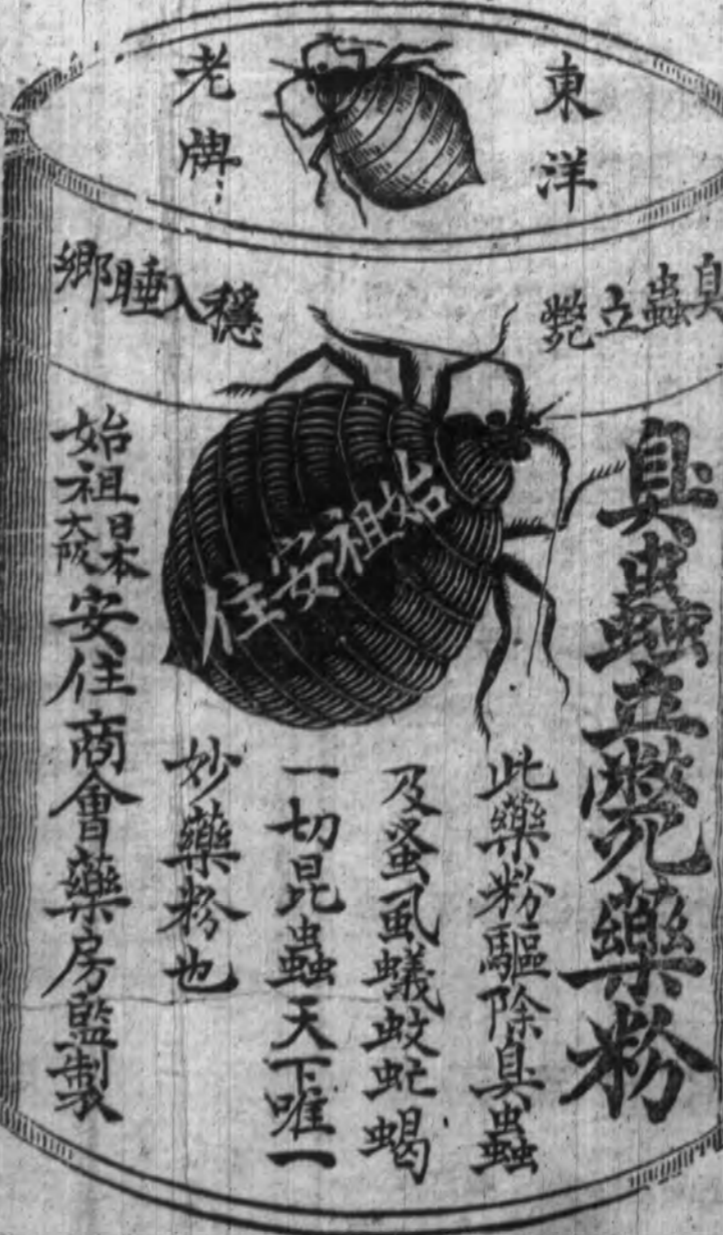 東洋
老牌
臭蟲立斃
穩入睡鄉
始祖安住
臭蟲立斃藥粉
此藥粉驅除臭蟲
及蚤虱蟻蚊虻蝎
一切昆蟲天下唯一
妙藥粉也
始祖日本大阪安住商會藥房監製